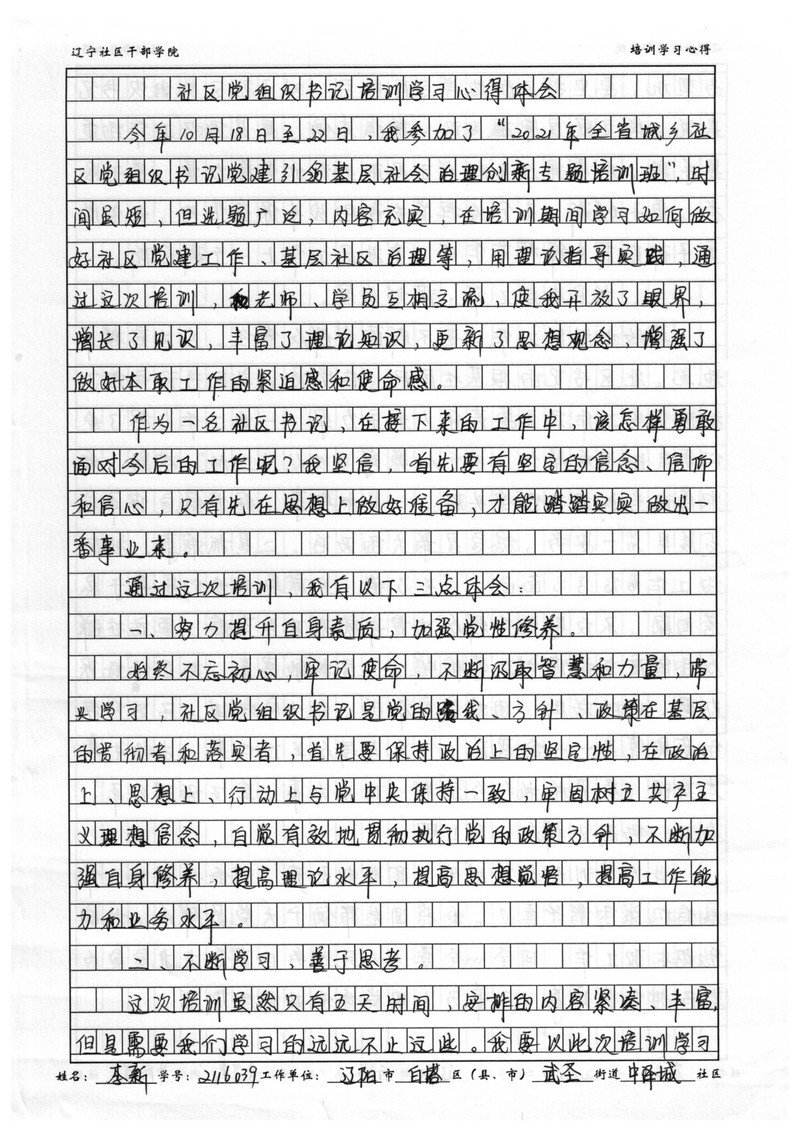 辽宁社区干部学院 培训学习心得
社区党组织书记培训学习心得体会
今年10月18日至22日，我参加了“2021年全省城乡社
区党组织书记党建引领基层社会治理创新专题培训班”，时
间虽短，但选题广泛，内容充实，在培训期间学习如何做
好社区党建工作、基层社区治理等，用理论指导实践，通
过这次培训，和老师、学员互相交流，使我开放了眼界，
增长了见识，丰富了理论知识，更新了思想观念，增强了
做好本职工作的紧迫感和使命感。
作为一名社区书记，在接下来的工作中，该怎样勇敢
面对今后的工作呢？我坚信，首先要有坚定的信念、信仰
和信心，只有先在思想上做好准备，才能踏踏实实做出一
番事业来。
通过这次培训，我有以下三点体会：
一、努力提升自身素质，加强党性修养。
始终不忘初心，牢记使命，不断汲取智慧和力量，带
头学习，社区党组织书记是党的路线、方针、政策在基层
的贯彻者和落实者，首先要保持政治上的坚定性，在政治
上、思想上、行动上与党中央保持一致，牢固树立共产主
义理想信念，自觉有效地贯彻执行党的政策方针，不断加
强自身修养，提高理论水平，提高思想觉悟，提高工作能
力和业务水平。
二、不断学习，善于思考。
这次培训虽然只有五天时间，安排的内容紧凑、丰富，
但是需要我们学习的远远不止这些。我要以此次培训学习
姓名：李新 学号：2116039 工作单位：辽阳 市 白塔 区（县、市） 武圣 街道 中泽城 社区